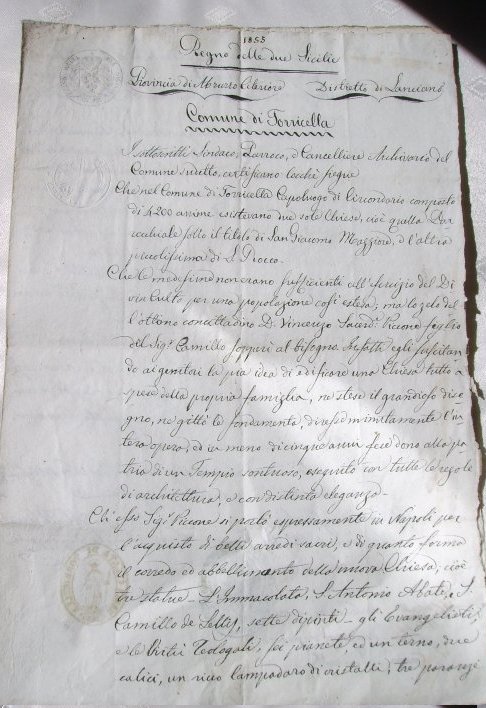 1855
Regno delle due Sicilie
Provincia di Abruzzo Citeriore Distretto di Lanciano
Comune di Torricella
I sottoscritti Sindaco, Parroco, e Cancelliere Archivario del
Comune sudetto, certificano locchè segue
Che nel Comune di Torricella Capoluogo di Circondario composto
di 4200 anime esistevano due sole Chiese, cioè quella Par-
rocchiale sotto il titolo di San Giacomo Maggiore, e l'altra
piccolissima di S. Rocco.
Che le medesime non erano sufficienti all'esercizio del Di
vin Culto per una popolazione così estesa; ma lo zelo del
l'ottimo concittadino D. Vincenzo Picone figlio
del Sig.r Camillo al bisogno. Infatti egli suscitan
do ai genitori la pia idea di edificare una Chiesa tutto a
spese della propria famiglia, ne stese il grandioso dise
gno, ne gittò le fondamenta, diresse minutamente l'in
tera opera, ed in meno di cinque anni fece dono alla pa
tria di un Tempio sontuoso, eseguito con tutte le regole
di architettura, e con distinta eleganza.
Che esso Sig.r Picone si portò espressamente in Napoli per
l'acquisto di belli arredi sacri, e di quanto forma
il corredo ed abbellimento della nuova Chiesa, cioè
tre statue - L'Immacolata, S. Antonio Abate, S.
Camillo de Lellis, sette dipinti - gli Evangelisti,
e le Virtù Teologali, sei pianete ed un terno, due
calici, un ricco lampadaro di cristalli, tre